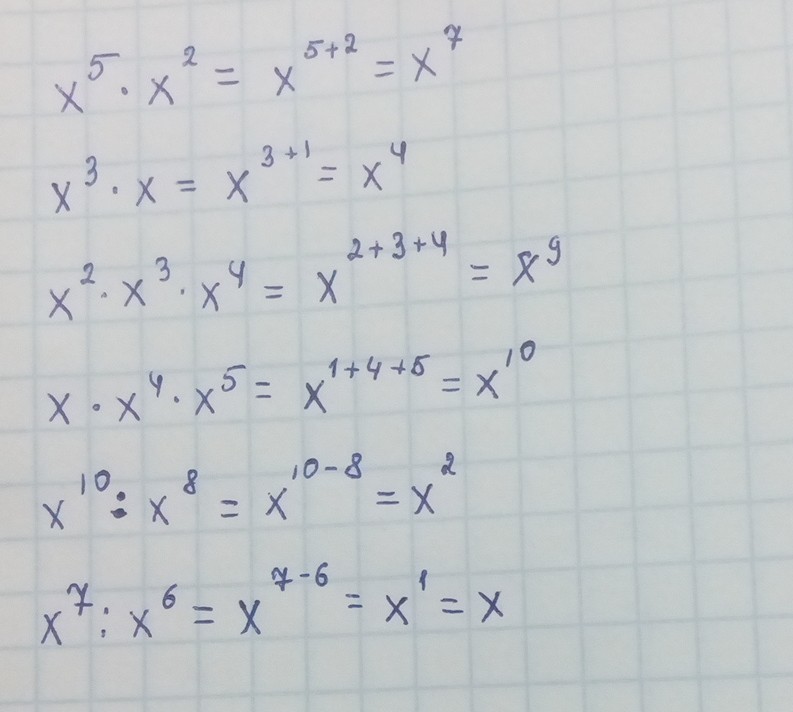 x⁵ · x² = x⁵⁺² = x⁷
x³ · x = x³⁺¹ = x⁴
x² · x³ · x⁴ = x²⁺³⁺⁴ = x⁹
x · x⁴ · x⁵ = x¹⁺⁴⁺⁵ = x¹⁰
x¹⁰ : x⁸ = x¹⁰⁻⁸ = x²
x⁷ : x⁶ = x⁷⁻⁶ = x¹ = x